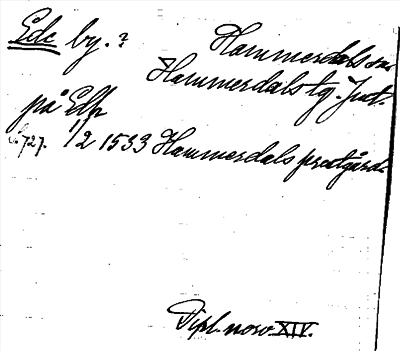 Ede by. ?
Hammerdals sn
Hammerdals tg. Jmt.
på Edh
727. 1/2 1533 Hammerdals prestgård
Dipl. norv. XIV.